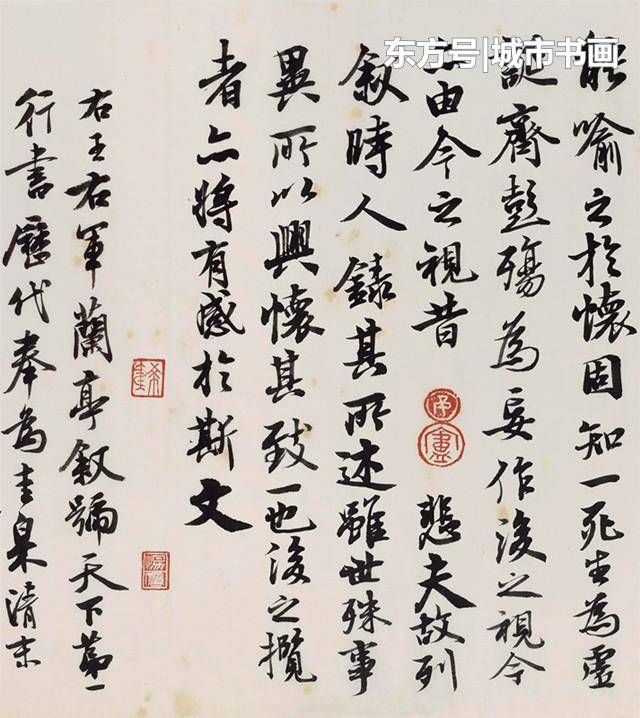 东方号|城市书画
能喻之於懷固知一死生為虛
誕齊彭殤為妄作後之視今
亦由今之視昔悲夫故列
敘時人錄其所述雖世殊事
異所以興懷其致一也後之攬
者亦將有感於斯文
右王右軍蘭亭敘號天下第一
行書歷代奉為圭臬清末